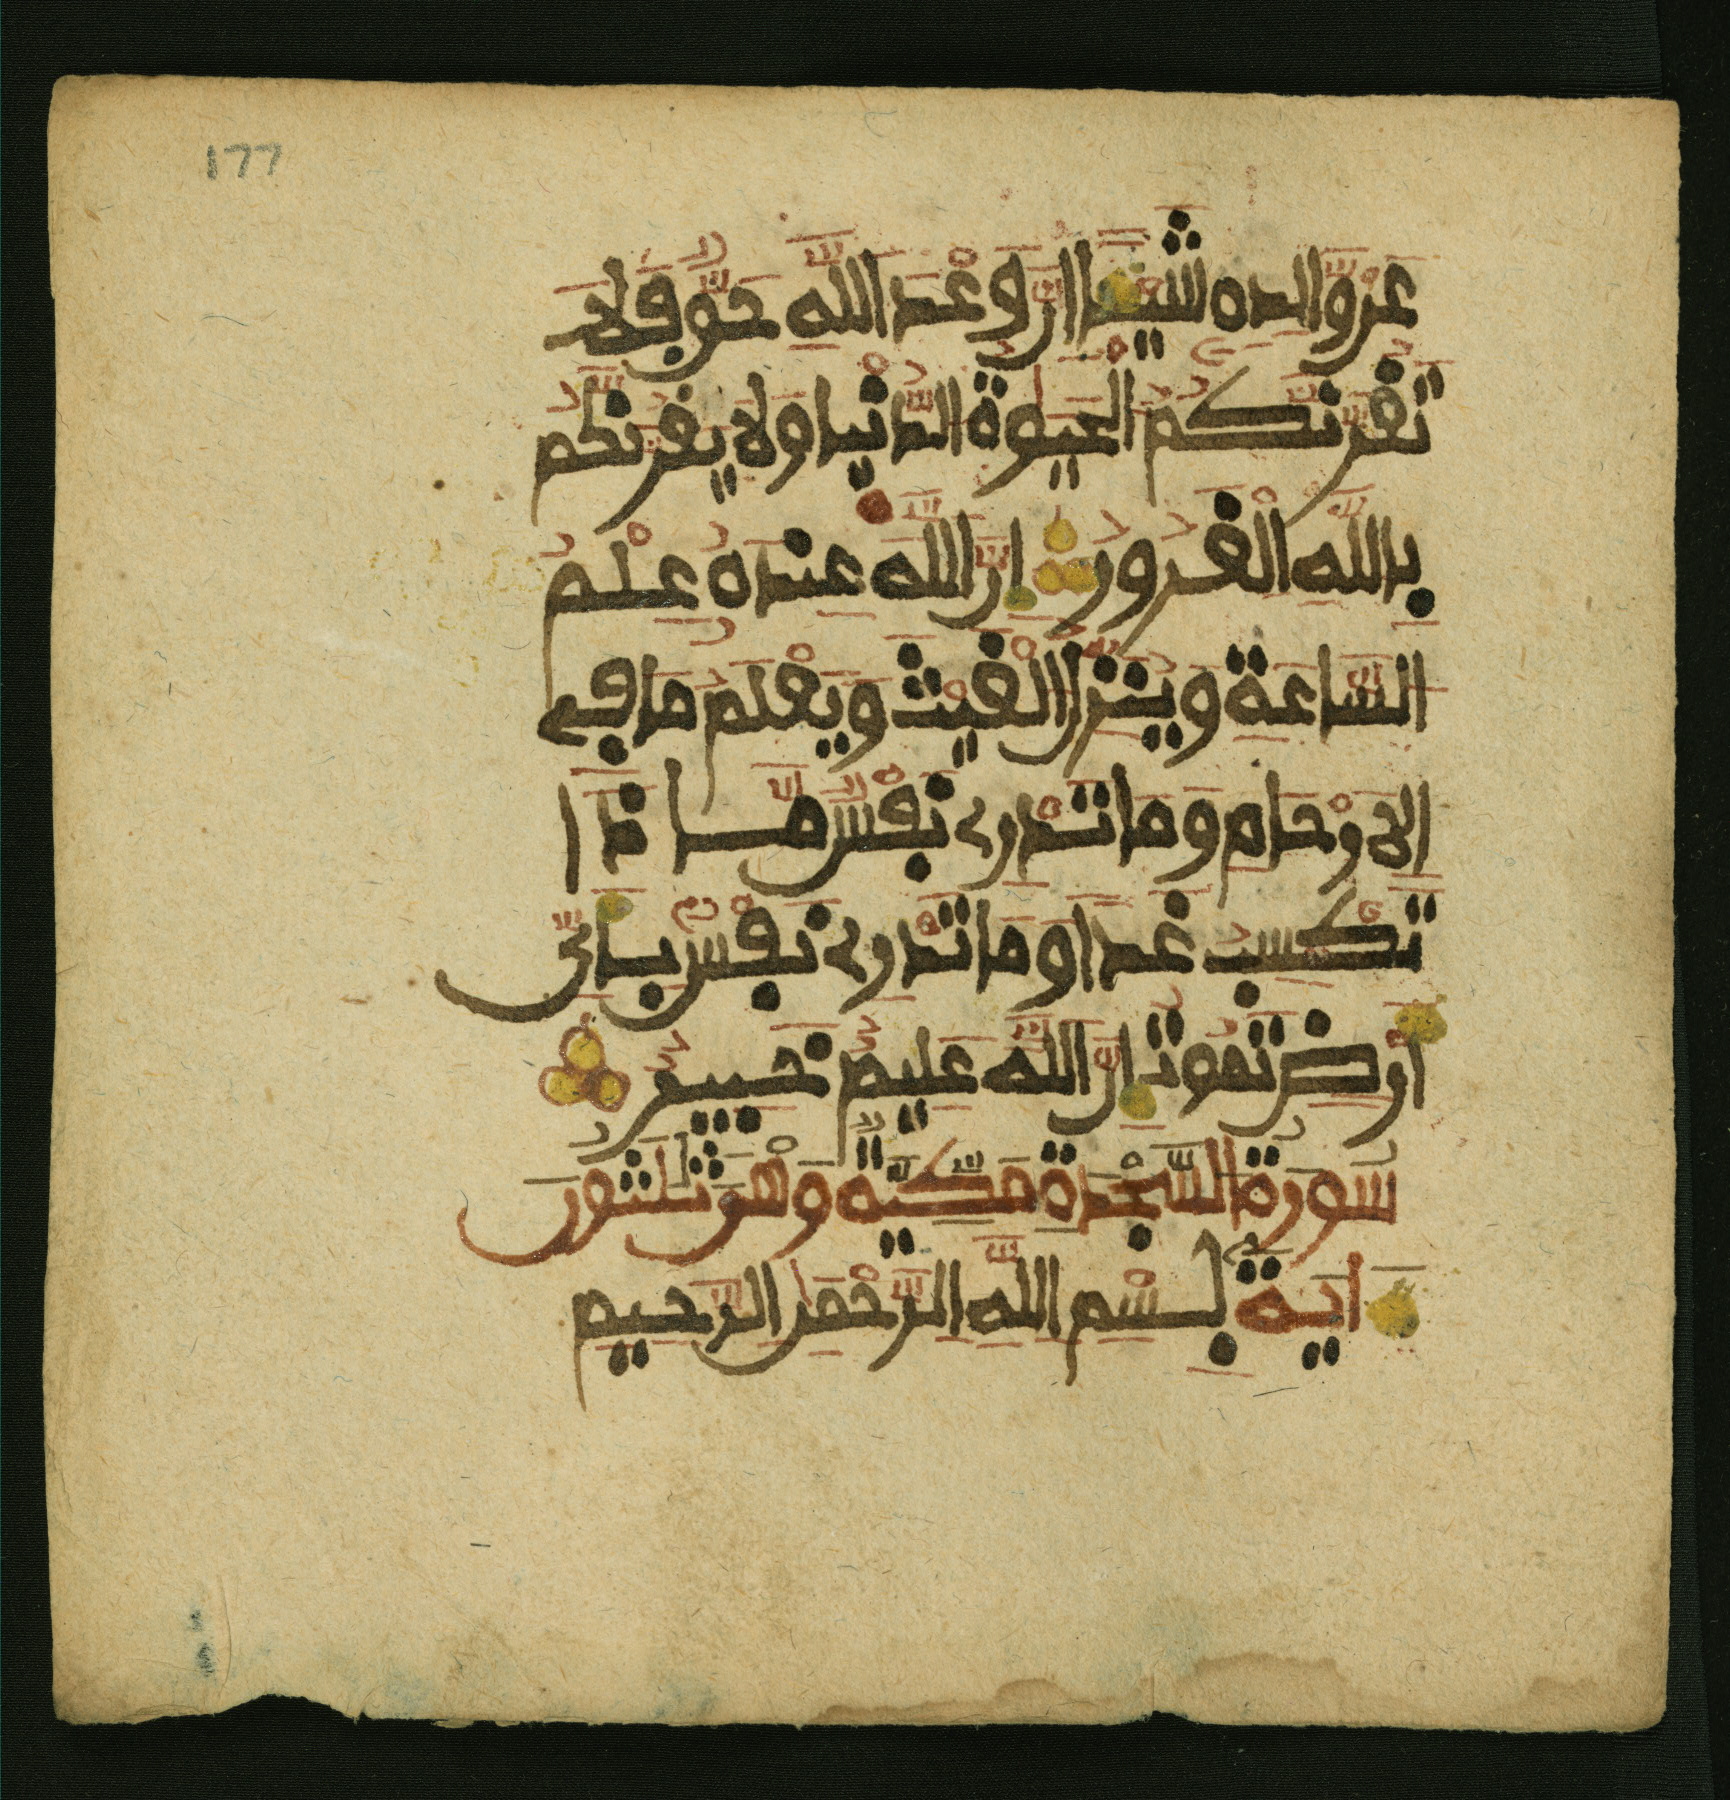 177
عَن وَّالِدِهِ شَيْـًٔا اِنَّ وَعْدَ اللَّهِ حَقٌّ فَلَا
تَغُرَّنَّكُمُ الْحَيَوٰةُ الدُّنْيَا وَلَا يَغُرَّنَّكُم
بِاللَّهِ الْغَرُورُ اِنَّ اللَّهَ عِندَهُ عِلْمُ
السَّاعَةِ وَيُنَزِّلُ الْغَيْثَ وَيَعْلَمُ مَا فِي
الَارْحَامِ وَمَا تَدْرِي نَفْسٌ مَّاذَا
تَكْسِبُ غَدًا وَمَا تَدْرِي نَفْسٌ بِأَيِّ
أَرْضٍ تَمُوتُ اِنَّ اللَّهَ عَلِيمٌ خَبِيرٌ
سُورَةُ السَّجْدَةِ مَكِّيَّةٌ وَهْىَ ثَلَٰثُونَ
ايَةً بِسْمِ اللَّهِ الرَّحْمَٰنِ الرَّحِيمِ